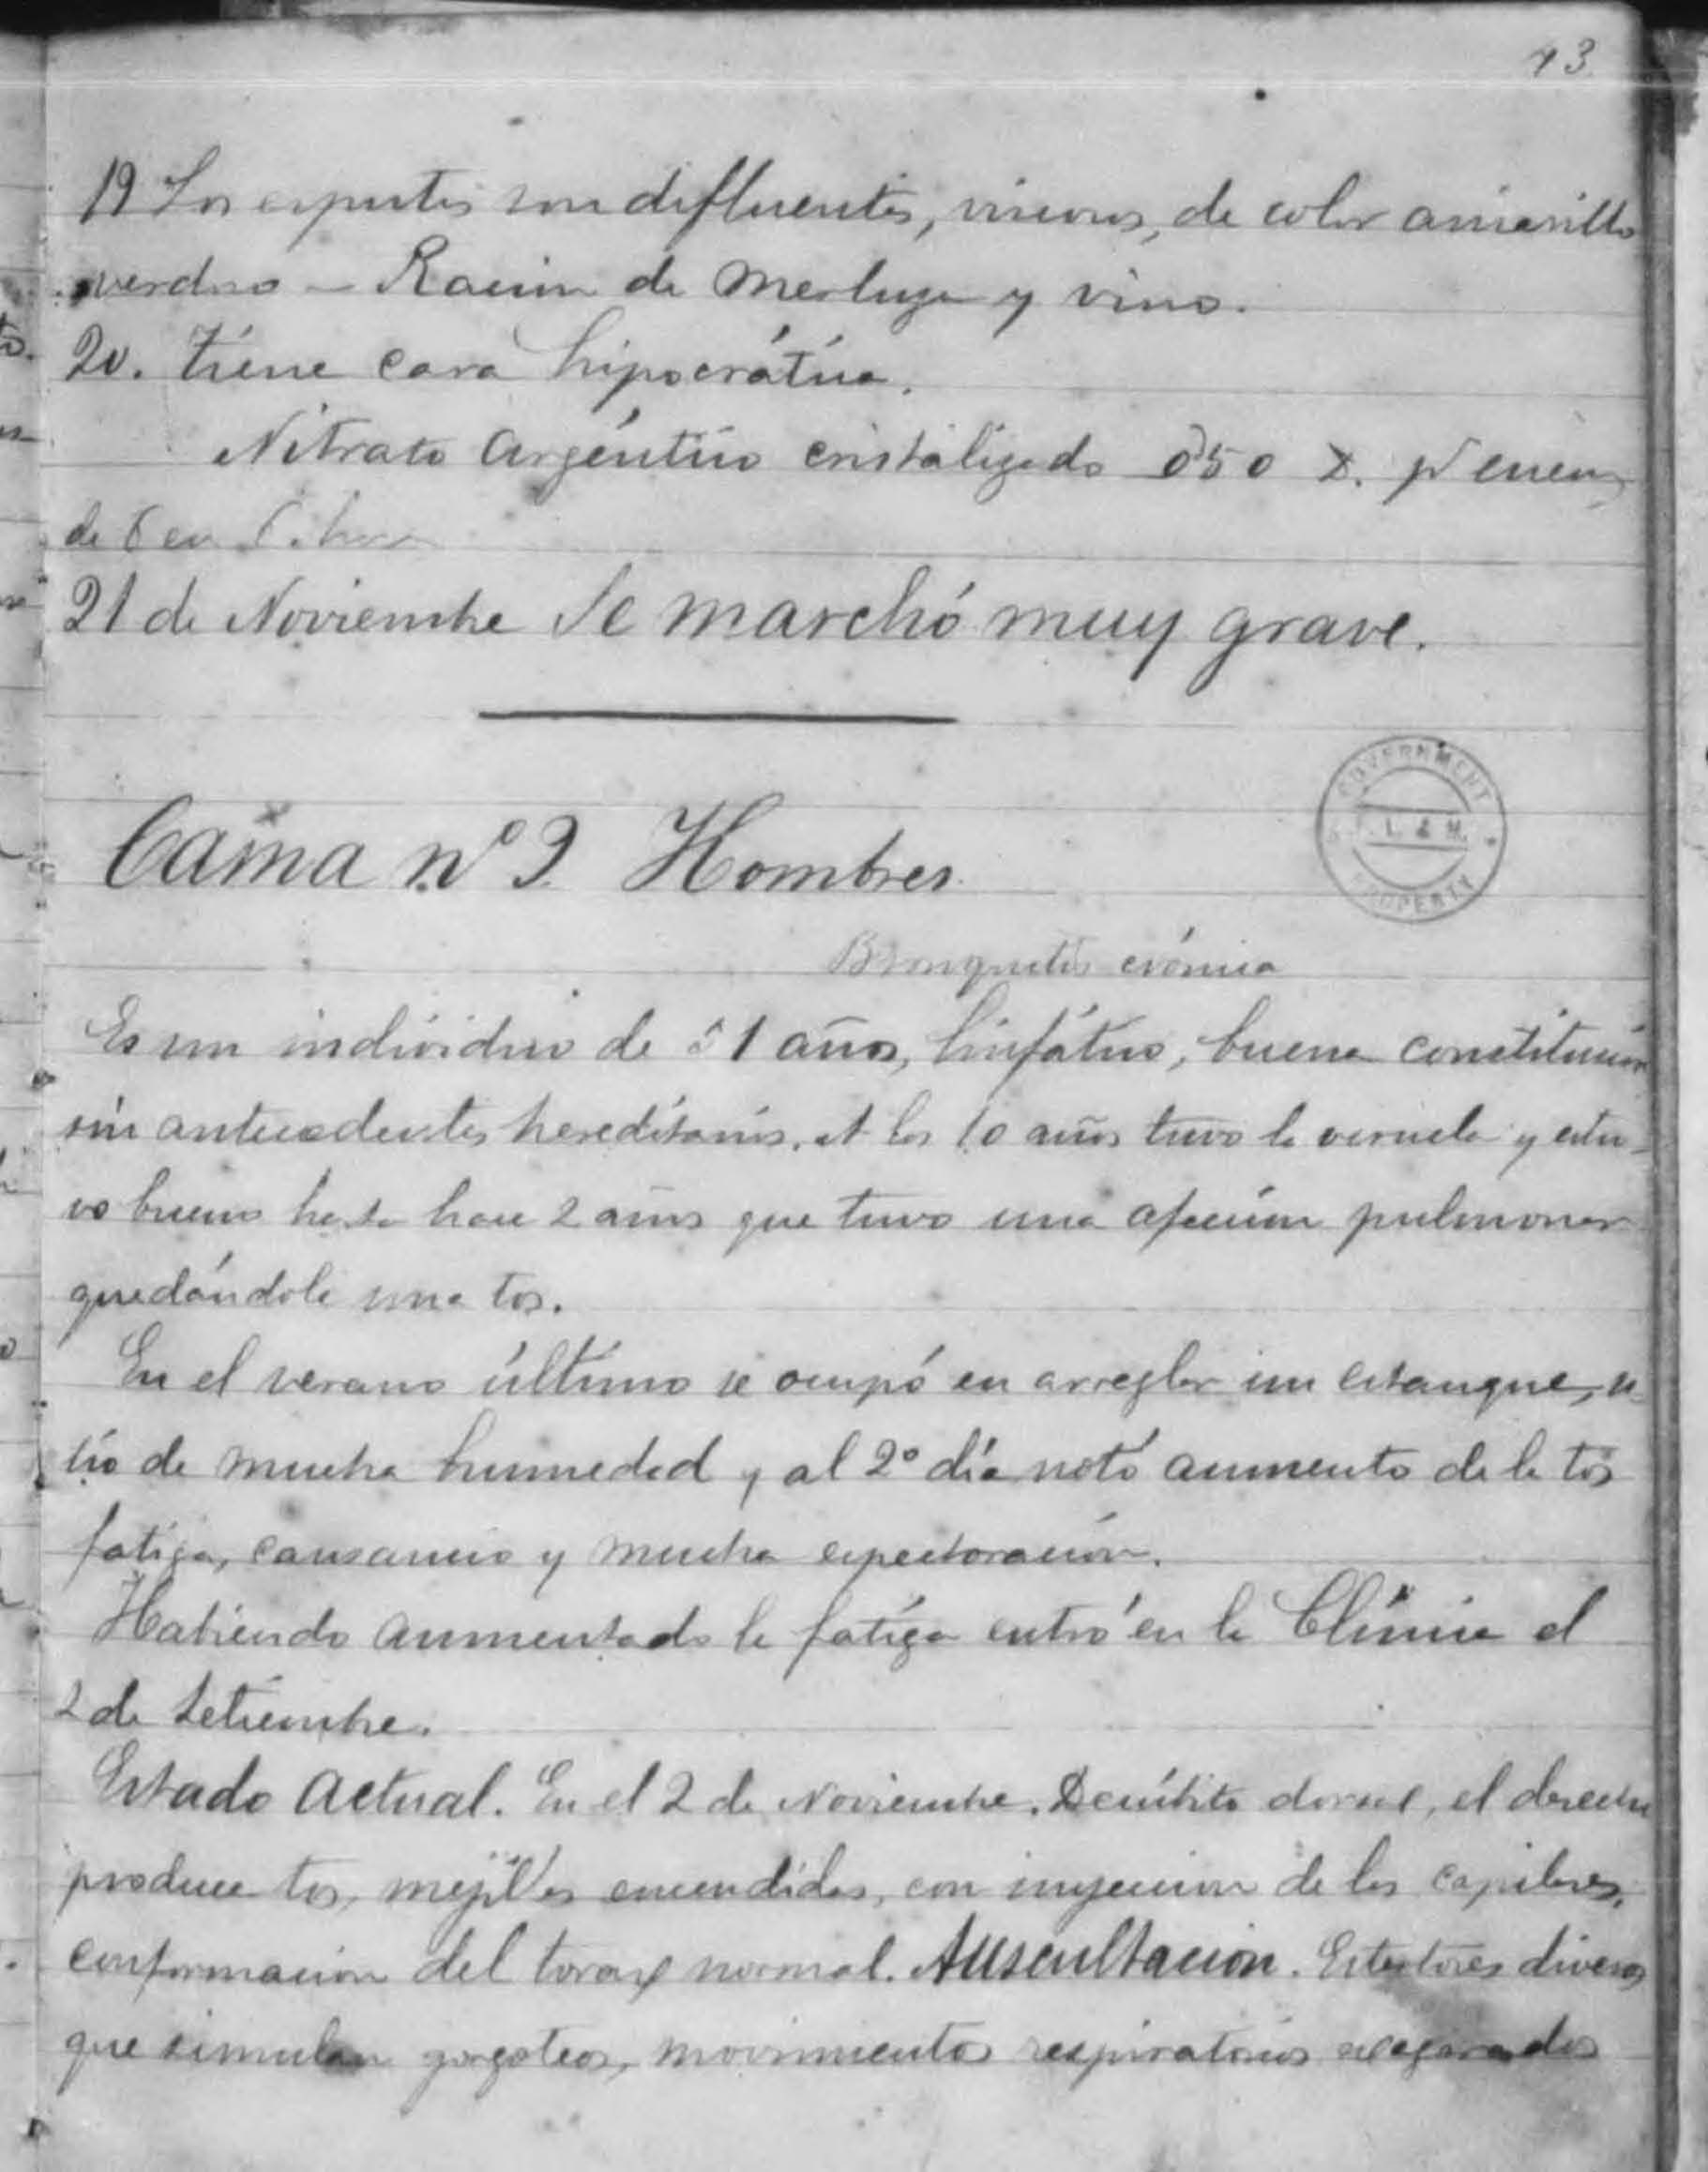 73
19 Los esputos son difluentes, viscosos, de color amarillo
verdoso - Racion de Merluza y vino.
20. Tiene cara hipocrática.
Nitrato argéntico cristalizado 0'50 pª enema
de 6 en 6 horas
21 de Noviembre Se marchó muy grave.
Cama nº 9 Hombres
GOVERNMENT PROPERTY L & M.
Bronquitis crónica
Es un individuo de 51 años, linfático, buena constitución
sin antecedentes hereditarios. A los 10 años tuvo la viruela y estu-
vo bueno hasta hace 2 años que tuvo una afección pulmonar
quedándole una tos.
En el verano último se ocupó en arreglar un estanque, si-
tio de mucha humedad y al 2º día notó aumento de la tos
fatiga, cansancio y mucha expectoración.
Habiendo aumentado la fatiga entró en la Clínica el
2 de Setiembre.
Estado Actual. En el 2 de Noviembre. Decúbito dorsal, el derecho
produce tos, mejillas encendidas, con inyeccion de los capilares,
conformacion del torax normal. Auscultacion. Estertores diversos
que simulan gorgoteos, movimientos respiratorios exagerados